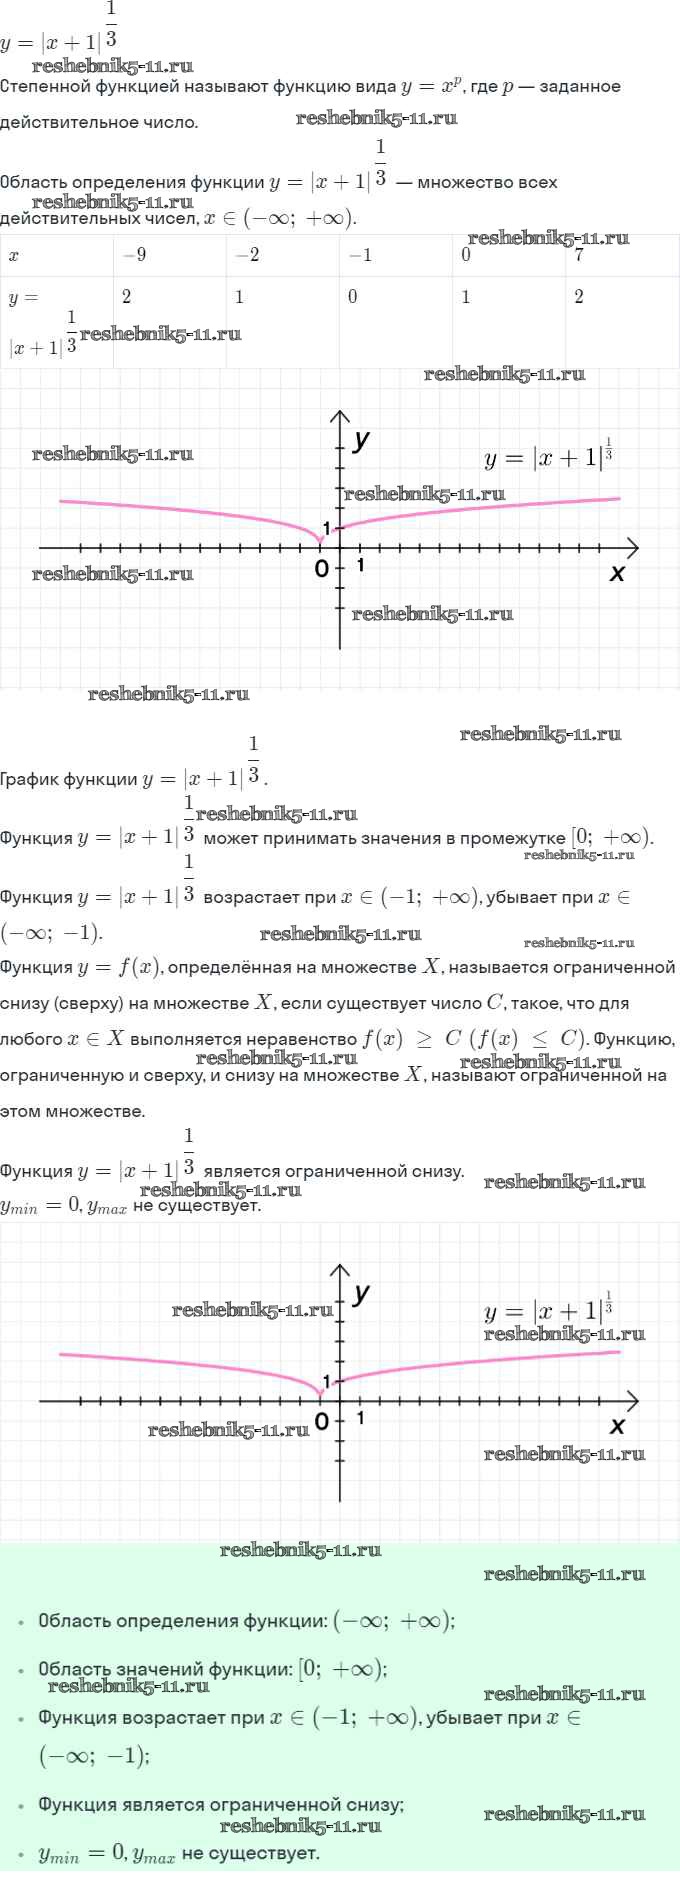 y = |x + 1|^{1/3}
reshebnik5-11.ru
Степенной функцией называют функцию вида y = x^p, где p — заданное
действительное число.
reshebnik5-11.ru
Область определения функции y = |x + 1|^{1/3} — множество всех
reshebnik5-11.ru
действительных чисел, x ∈ (−∞; +∞).
reshebnik5-11.ru
x −9 −2 −1 0 7
y = 2 1 0 1 2
|x + 1|^{1/3} reshebnik5-11.ru
reshebnik5-11.ru
y
reshebnik5-11.ru
y = |x + 1|^{1/3}
reshebnik5-11.ru
1
0 1 x
reshebnik5-11.ru
reshebnik5-11.ru
reshebnik5-11.ru
reshebnik5-11.ru
График функции y = |x + 1|^{1/3}.
reshebnik5-11.ru
Функция y = |x + 1|^{1/3} может принимать значения в промежутке [0; +∞).
reshebnik5-11.ru
Функция y = |x + 1|^{1/3} возрастает при x ∈ (−1; +∞), убывает при x ∈
(−∞; −1).
reshebnik5-11.ru
reshebnik5-11.ru
Функция y = f(x), определённая на множестве X, называется ограниченной
снизу (сверху) на множестве X, если существует число C, такое, что для
любого x ∈ X выполняется неравенство f(x) ≥ C (f(x) ≤ C). Функцию,
reshebnik5-11.ru reshebnik5-11.ru
ограниченную и сверху, и снизу на множестве X, называют ограниченной на
этом множестве.
Функция y = |x + 1|^{1/3} является ограниченной снизу.
reshebnik5-11.ru reshebnik5-11.ru
y_{min} = 0, y_{max} не существует.
y
reshebnik5-11.ru
y = |x + 1|^{1/3}
reshebnik5-11.ru
1
0 1 x
reshebnik5-11.ru
reshebnik5-11.ru
reshebnik5-11.ru
reshebnik5-11.ru
• Область определения функции: (−∞; +∞);
• Область значений функции: [0; +∞);
reshebnik5-11.ru
reshebnik5-11.ru
• Функция возрастает при x ∈ (−1; +∞), убывает при x ∈
(−∞; −1);
• Функция является ограниченной снизу;
reshebnik5-11.ru
reshebnik5-11.ru
• y_{min} = 0, y_{max} не существует.